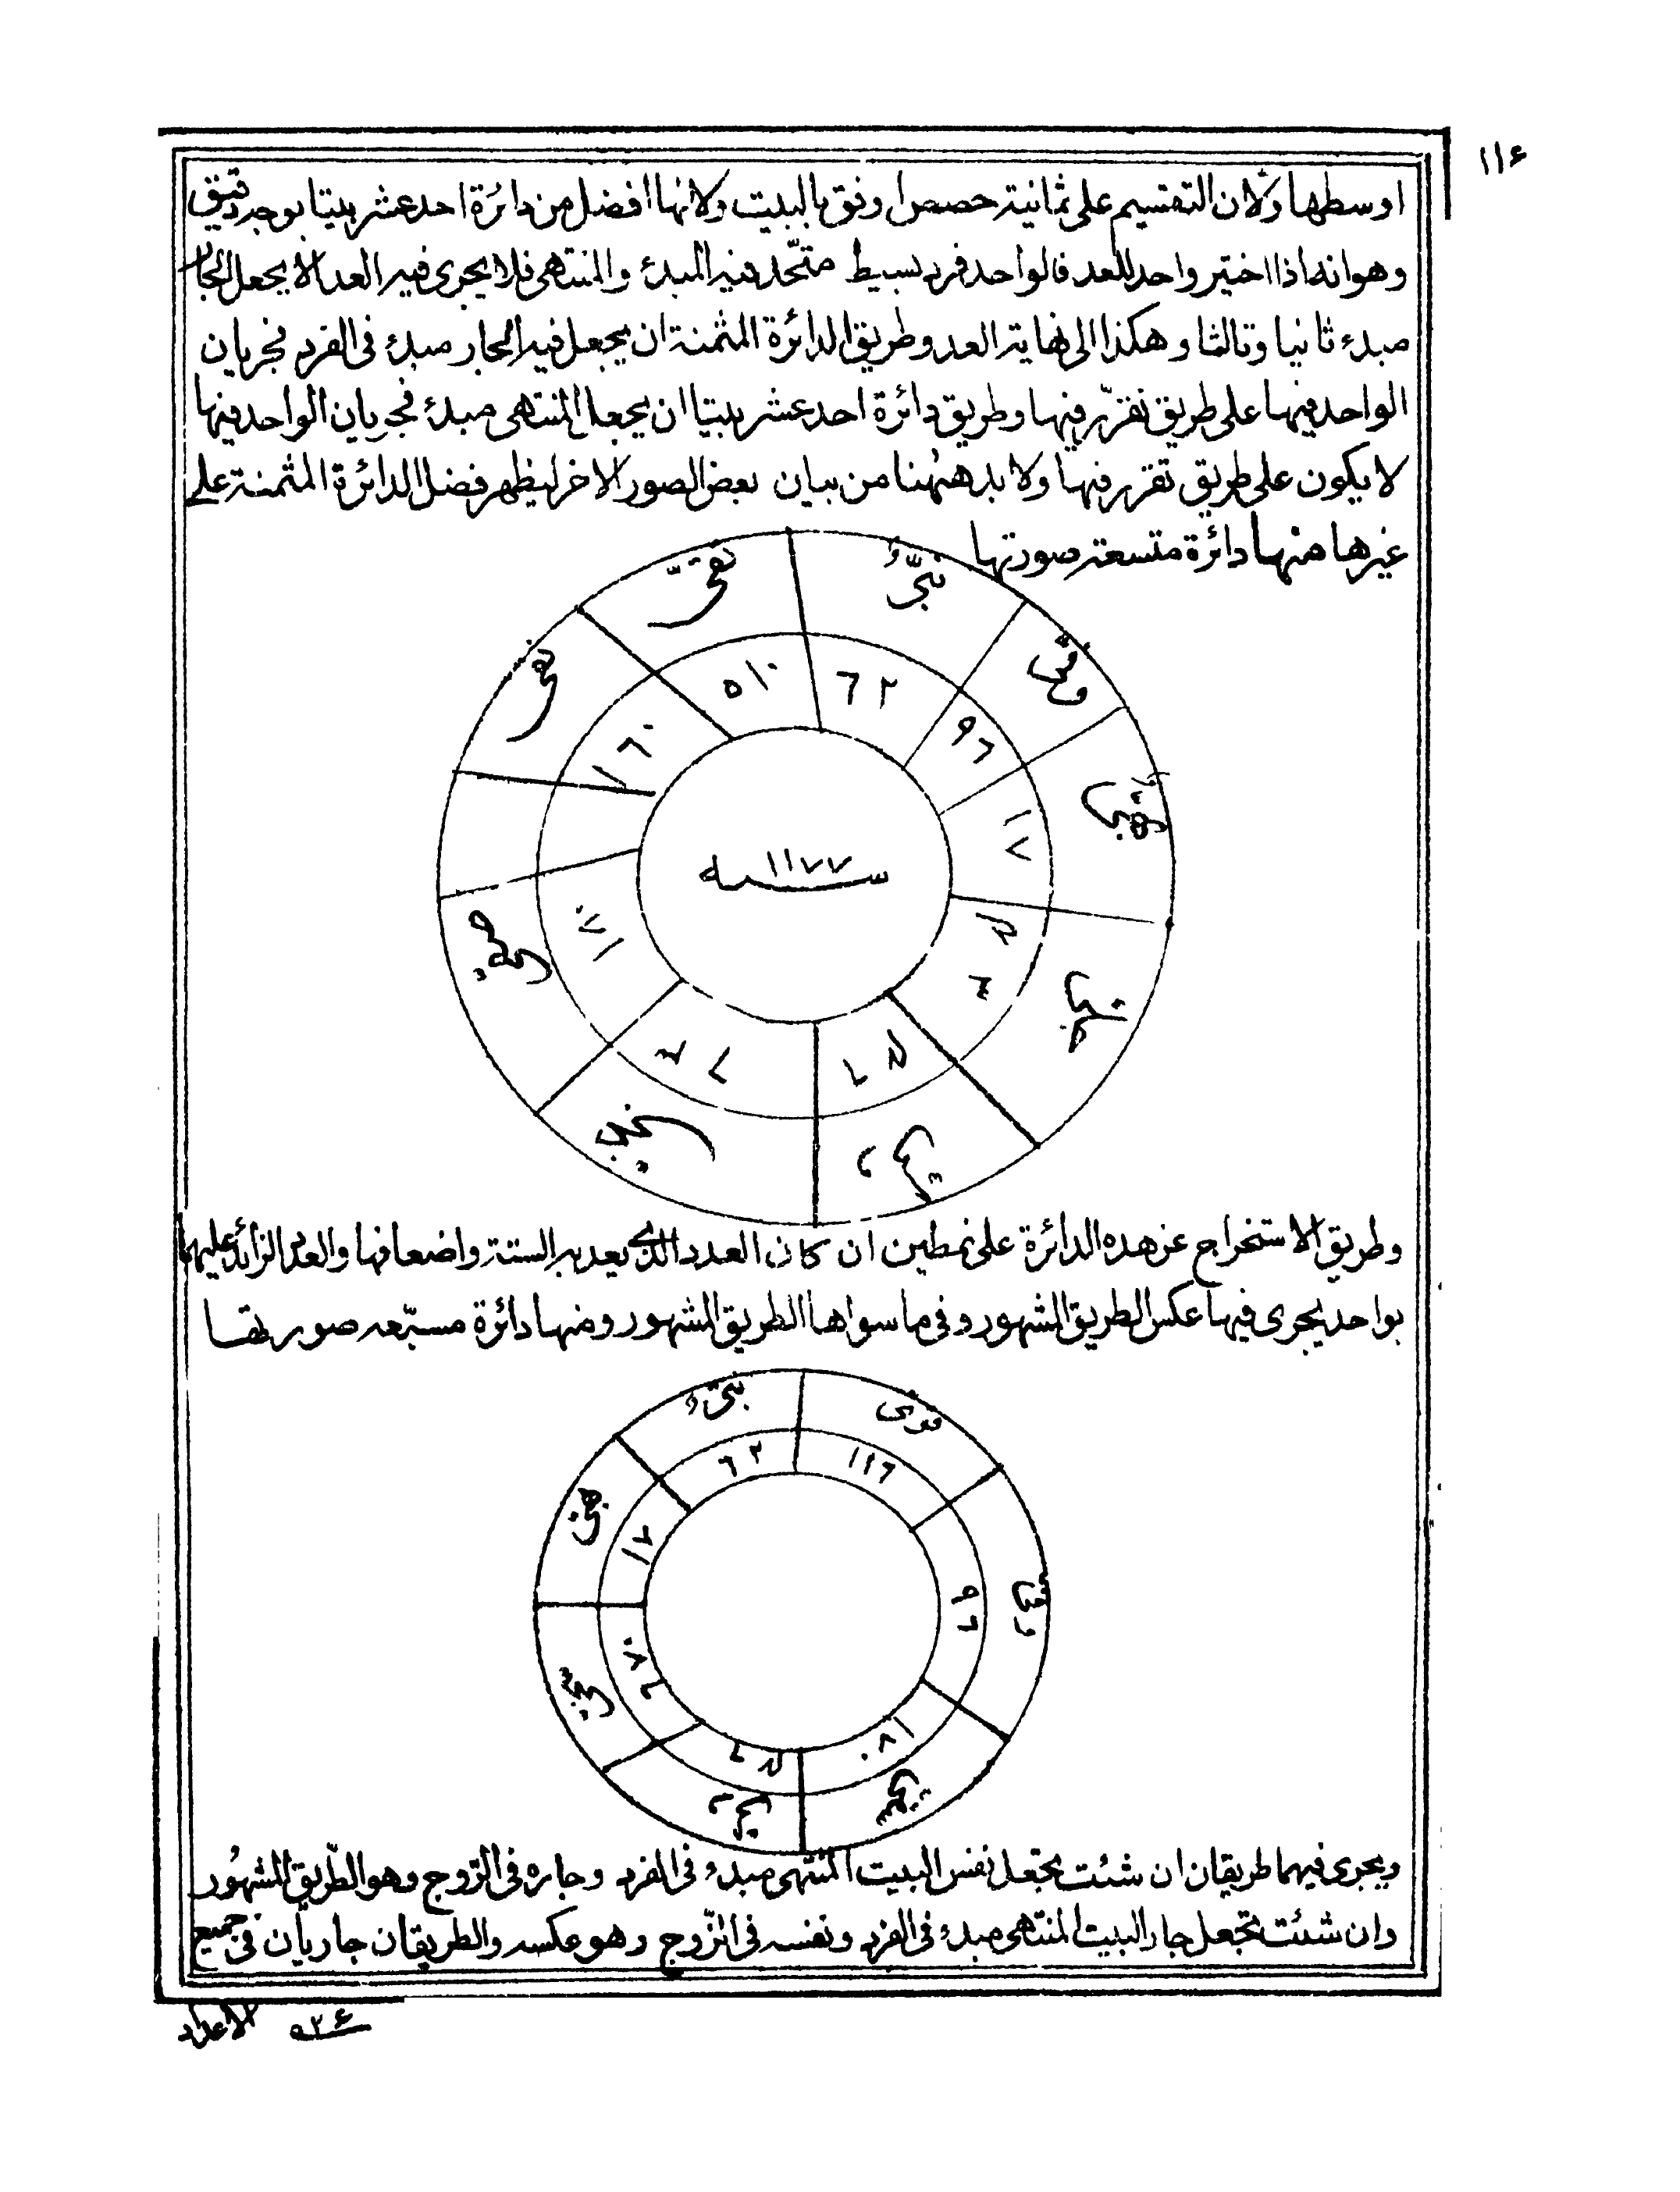 ١١٤
اوسطها ولان التقسيم على ثمانية حصص اوفق بالبيت ولانها افضل من دائرة احد عشر بيتا بوجه دقيق
وهو انه اذا اختير واحد للعد فالواحد فرد بسيط متّحد فيه المبدء والمنتهى فلا يجرى فيه العد الا يجعل الجار
مبدء ثانيا وثالثا وهكذا الى نهاية العد وطريق الدائرة المثمنة ان يجعل فيه الجار مبدء فى الفرد فجريان
الواحد فيها على طريق تقرّر فيها وطريق دائرة احد عشر بيتا ان يجعل المنتهى مبدء فجريان الواحد فيها
لا يكون على طريق تقرر فيها ولا بد ههنا من بيان بعض الصور الاخر ليظهر فضل الدائرة المثمنة على
غيرها منها دائرة متسعة صورتها
نبىّ
تقىّ
نقى
٦٢
٥١٠
٩٦
١٦٠
١٧
سنه ١١٧٧
وطريق الاستخراج عن هذه الدائرة على نمطين ان كان العدد الذى يعد به الستة واضعافها والعدد الزائد عليهما
بواحد يجرى فيها عكس الطريق المشهور وفى ما سواها الطريق المشهور ومنها دائرة مسبّعه صورتها
قوى
٦٢
١١٦
١٧
٩٦
١٨٠
ويجرى فيهما طريقان ان شئت تجعل نفس البيت المنتهى مبدء فى الفرد وجاره فى الزّوج وهو الطّريق المشهور
وان شئت تجعل جار البيت المنتهى مبدء فى الفرد ونفسه فى الزّوج وهو عكسه والطريقان جاريان فى جميع
الاعداد